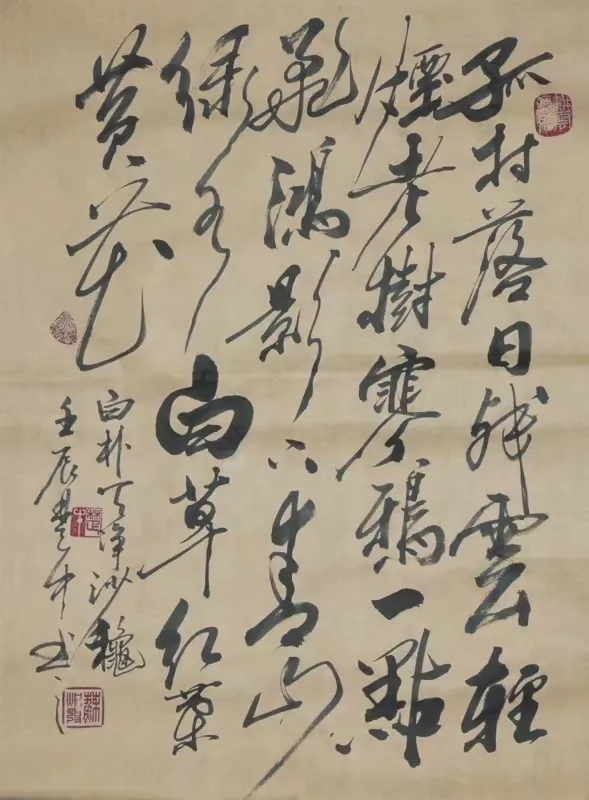 孤村落日残雲輕
煙老樹寒鴉一點
飛鴻影下青山
綠水白草紅葉
黄花
白朴天淨沙龝
壬辰中书